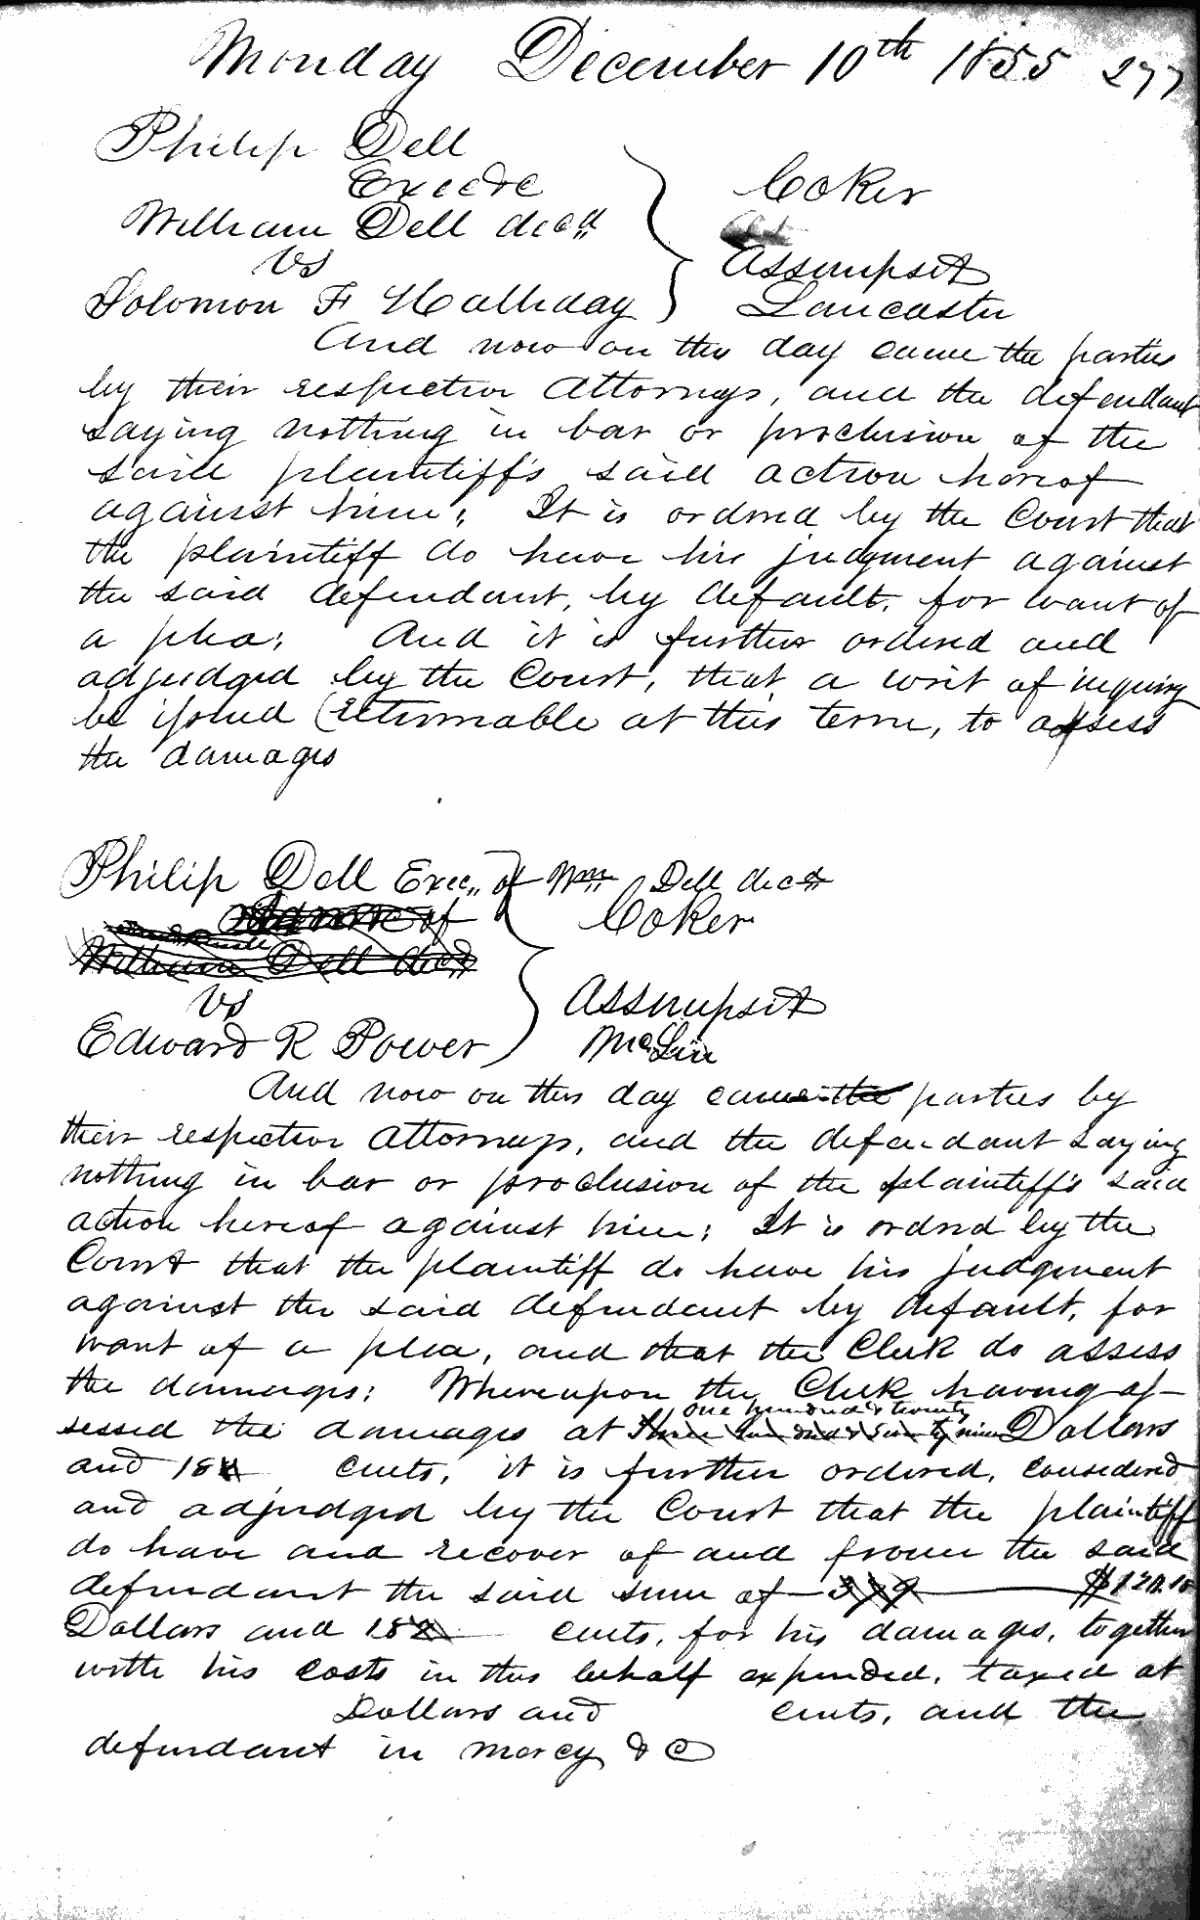 Monday December 10th 1855 277
Philip Dell
Exec
William Dell decd
vs
Solomon F Halliday
Coker
Assumpsit
Lancaster
And now on this day came the parties
by their respective Attorneys, and the defendant
saying nothing in bar or preclusion of the
said plaintiff's said action hereof
against him; It is ordered by the Court that
the plaintiff do have his judgment against
the said defendant, by default, for want of
a plea; And it is further ordered and
adjudged by the Court, that a writ of inquiry
be issued (returnable at this term, to assess
the damages
Philip Dell Exec,, of Wm Dell decd
Admr of
William Dell decd
vs
Edward R Power
Coker
Assumpsit
McLin
And now on this day came the parties by
their respective Attorneys, and the defendant saying
nothing in bar or preclusion of the plaintiff's said
action hereof against him; It is ordred by the
Court that the plaintiff do have his judgment
against the said defendant by default, for
want of a plea, and that the Clerk do assess
the damages; Whereupon the Clerk having as-
one hundred & twenty
sessed the damages at Three hundred & seventy nine Dollars
and 18 cents, it is further ordered, considered
and adjudged by the Court that the plaintiff
do have and recover of and from the said
defendant the said sum of 379 $120.18
Dollars and 18 cents, for his damages, together
with his costs in this behalf expended, taxed at
Dollars and cents, and the
defendant in mercy &c